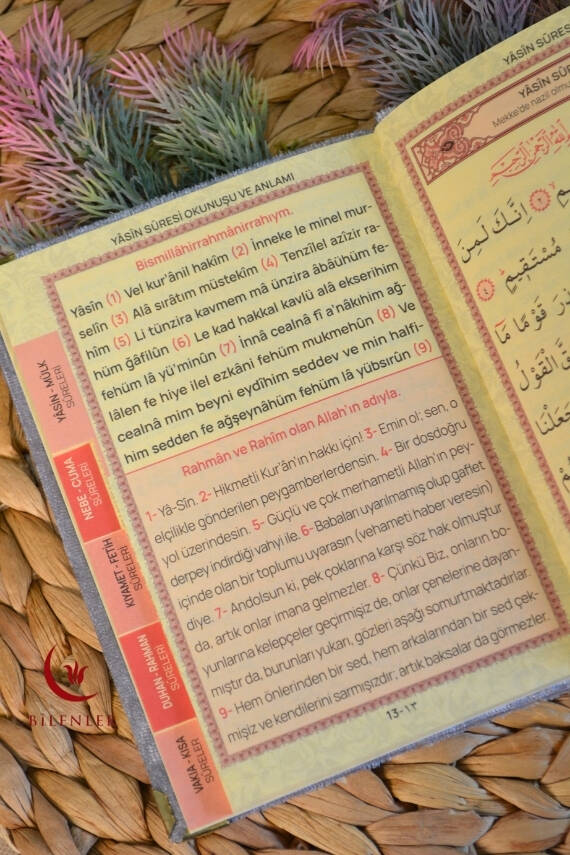 YÂSİN SÛRESİ OKUNUŞU VE ANLAMI
Bismillâhirrahmânirrahıym.
Yâsîn (1) Vel kur'ânil hakîm (2) İnneke le minel mur-
selîn (3) Alâ sırâtım müstekîm (4) Tenzîlel azîzir ra-
hîm (5) Li tünzira kavmem mâ ünzira âbâühüm fe-
hüm ğâfilûn (6) Le kad hakkal kavlü alâ ekserihim
fehüm lâ yü'minûn (7) İnnâ cealnâ fî a'nâkıhim ağ-
lâlen fe hiye ilel ezkâni fehüm mukmehûn (8) Ve
cealnâ mim beyni eydîhim seddev ve min halfi-
him sedden fe ağşeynâhüm fehüm lâ yübsırûn (9)
Rahmân ve Rahîm olan Allah'ın adıyla.
1- Yâ-Sîn. 2- Hikmetli Kur'ân'ın hakkı için! 3- Emin ol: sen, o
elçilikle gönderilen peygamberlerdensin. 4- Bir dosdoğru
yol üzerindesin. 5- Güçlü ve çok merhametli Allah'ın pey-
derpey indirdiği vahyi ile. 6- Babaları uyarılmamış olup gaflet
içinde olan bir toplumu uyarasın (vehameti haber veresin)
diye. 7- Andolsun ki, pek çoklarına karşı söz hak olmuştur
da, artık onlar imana gelmezler. 8- Çünkü Biz, onların bo-
yunlarına kelepçeler geçirmişiz de, onlar çenelerine dayan-
mıştır da, burunları yukarı, gözleri aşağı somurtmaktadırlar.
9- Hem önlerinden bir sed, hem arkalarından bir sed çek-
mişiz ve kendilerini sarmışızdır; artık baksalar da görmezler.
13-١٣
YÂSİN - MÜLK
SÛRELERİ
NEBE - CUMA
SÛRELERİ
KIYAMET - FETİH
SÛRELERİ
DUHAN - RAHMAN
SÛRELERİ
VAKIA - KISA
SÛRELER
BİLENLER
YÂSİN SÛRESİ
YÂSİN SÛR
Mekke'de nazil olmu
إِنَّكَ لَمِنَ
مُسْتَقِيمٍ
قَوْمًا مَا
الْقَوْلُ